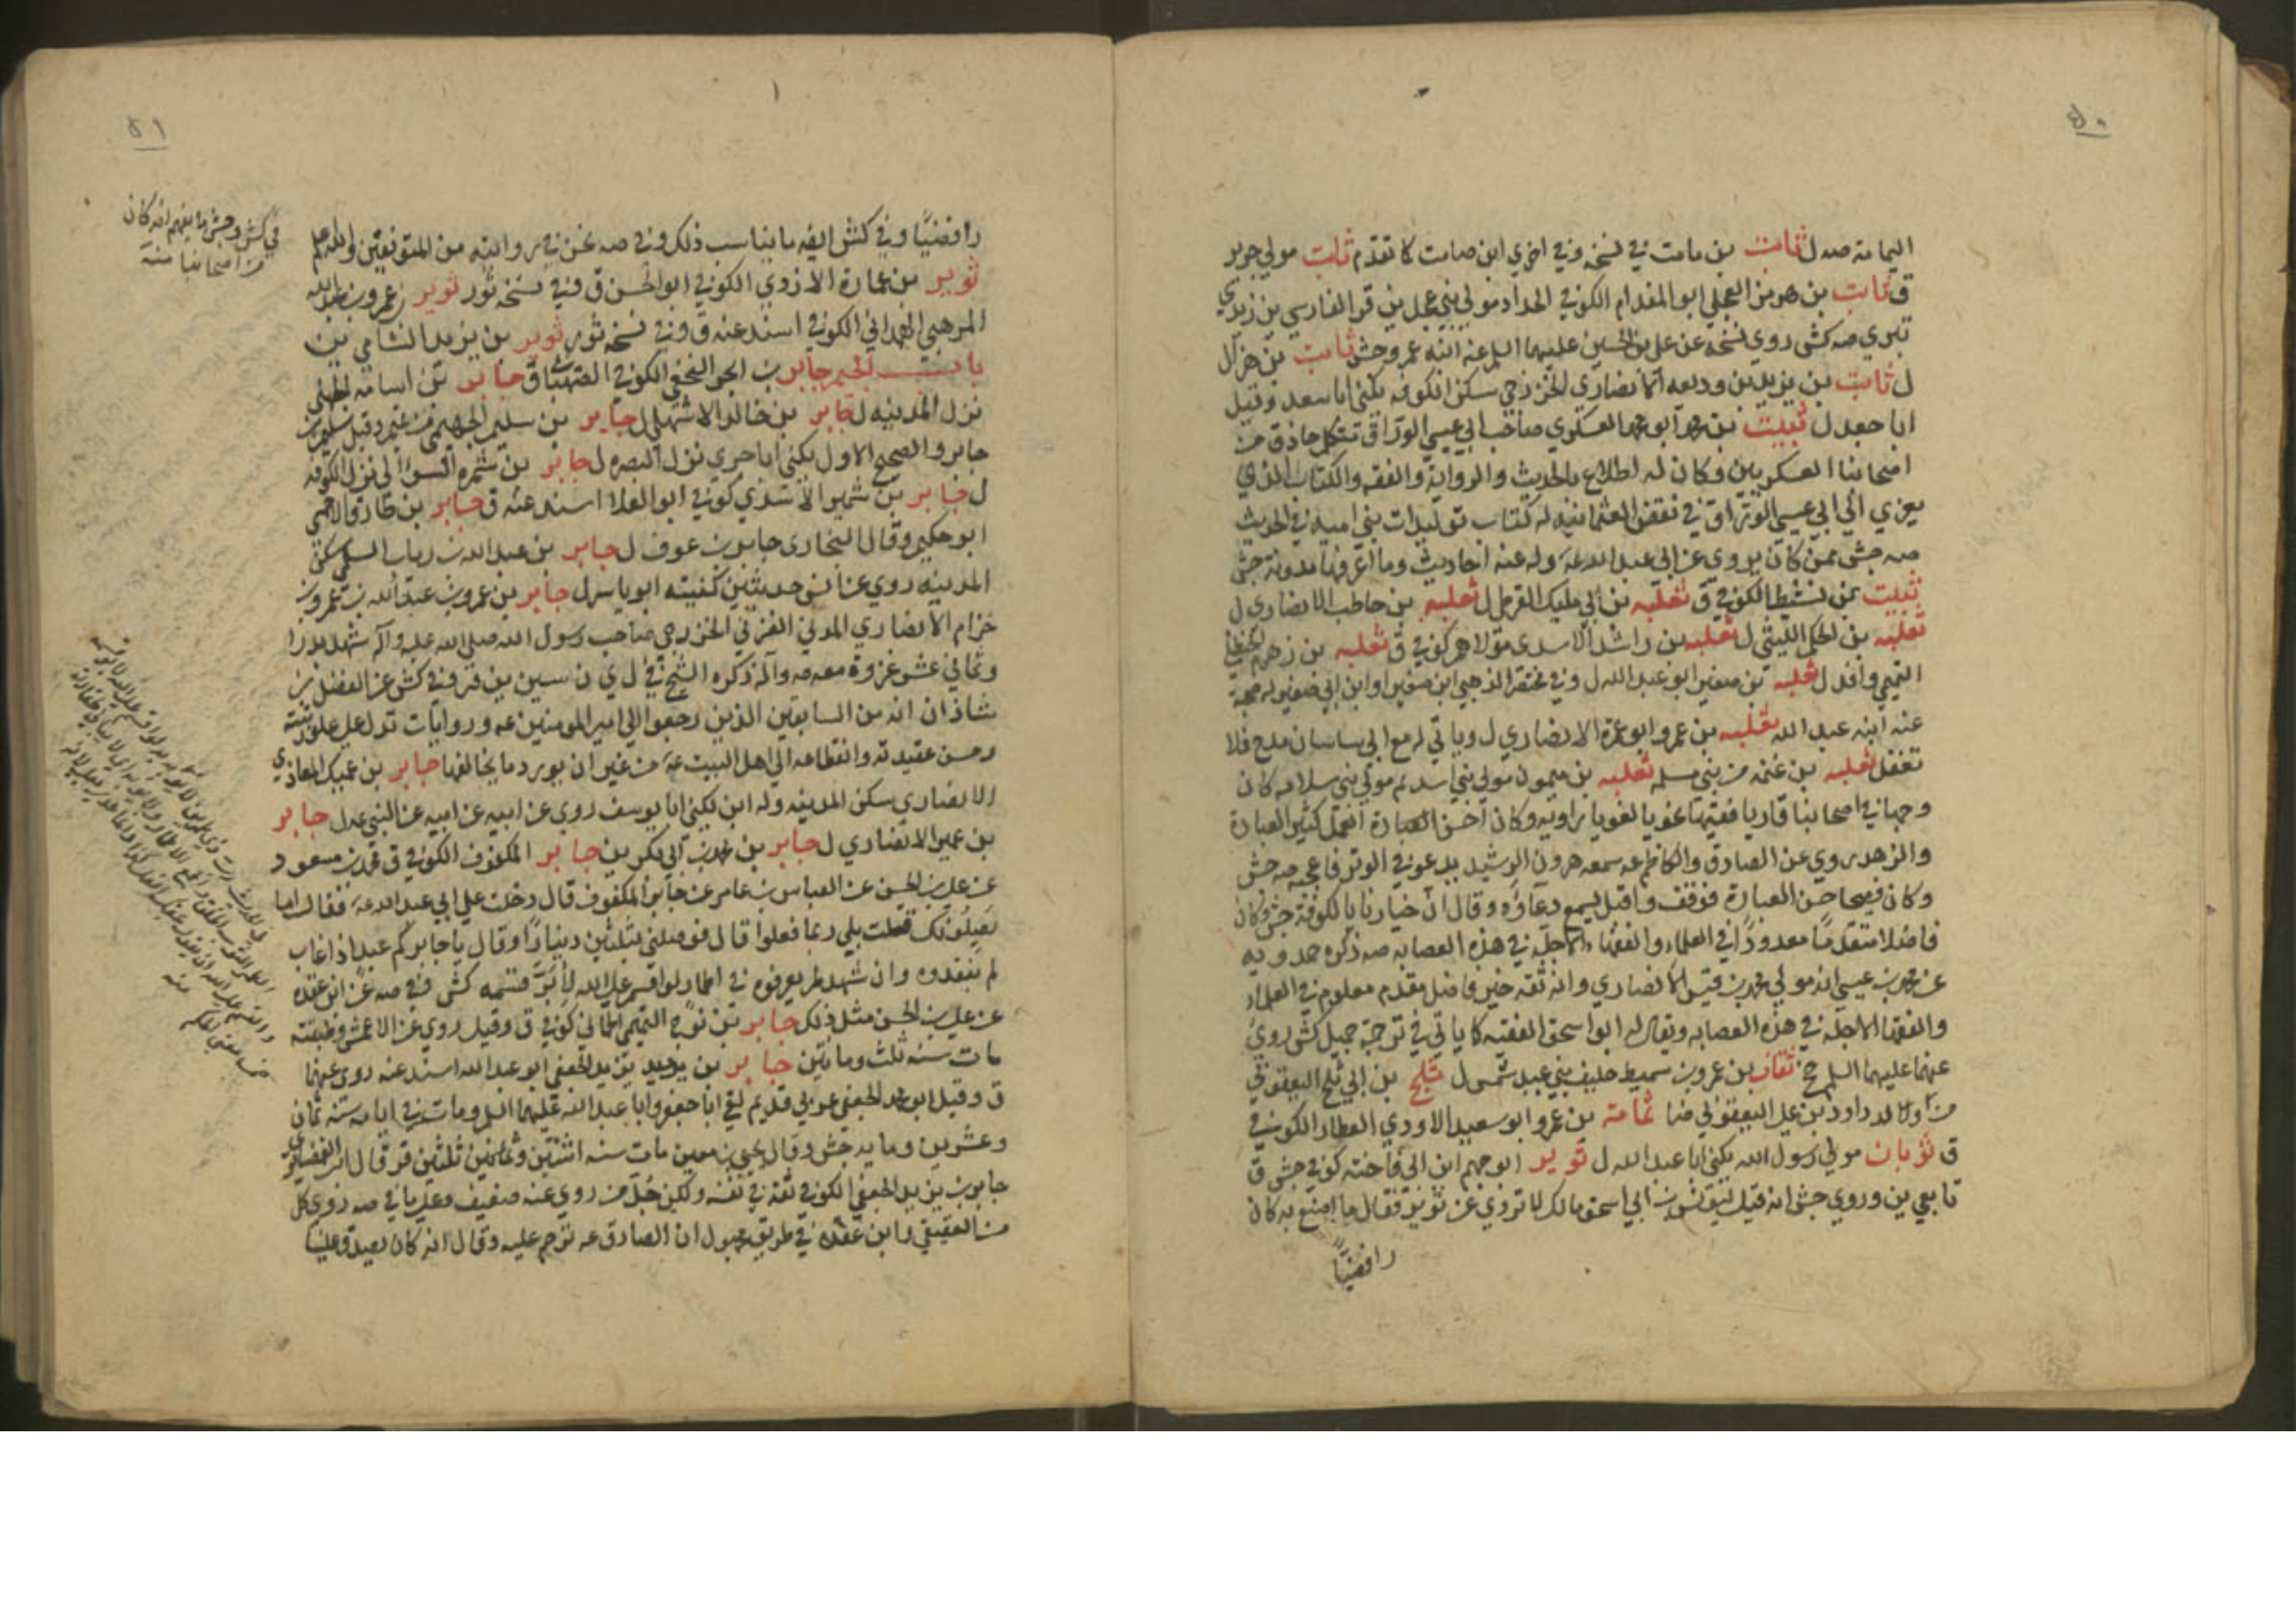 ٥٠
اليمامة صه ل ثابت بن مامت في نسخة وفي اخرى ابن صامت كما تقدم ثابت مولى جرير
ق ثابت بن هرمز العجلي ابو المقدام الكوفي الحداد مولى بني عجل ين قر الفارسي ين زيدي
تبري صه كش روى نسخة عن علي بن الحسين عليهما السلم عنه ابنه عمرو جش ثابت بن هزال
ل ثابت بن يزيد بن وديعه الانصاري الخزرجي سكن الكوفه يكنى ابا سعد وقيل
ابا جعد ل ثبيت بن محمد ابو محمد العسكري صاحب ابي عيسى الوراق متكلم حاذق من
اصحابنا العسكريين وكان له اطلاع بالحديث والرواية والفقه والكتاب الذي
يعزى الى ابي عيسى الوراق في نقض العثمانية له كتاب توليدات بني امية في الحديث
صه جش ممن كان يروي عن ابي عبد الله عه وله عنه احاديث وما اعرفها مدونة جش
ثبيت بن نشيط الكوفي ق ثعلبه بن ابي مليك القرظي ل ثعلبه بن حاطب الانصاري ل
ثعلبه بن الحكم الليثي ل ثعلبه بن راشد الاسدي مولاهم كوفي ق ثعلبه بن زهدم الحنظلي
التميمي وافد ل ثعلبه بن صعير ابو عبد الله ل وفي مختصر الذهبي ابن صعير او ابن ابي صعير له صحبة
عنه ابنه عبد الله ثعلبه بن عمرو ابو عمرة الانصاري ل وياتي له مع ابي ساسان مدح فلا
تغفل ثعلبه بن غنمه من بني سلمه ثعلبه بن ميمون مولى بني اسد ثم مولى بني سلامه كان
وجها في اصحابنا قاريا فقيها نحويا لغويا راويه وكان احسن العبادة العمل كثير العبادة
والزهد روى عن الصادق والكاظم عه سمعه هرون الرشيد يدعو في الوتر فاعجبه صه جش
وكان فصيحا حسن العبارة فوقف واقبل يسمع دعاؤه وقال ان خيارنا بالكوفة جش وكان
فاضلا متقدما معدودا في العلماء والفقهاء الاجلة في هذه العصابه صه ذكره حمدويه
عن محمد بن عيسى انه مولى محمد بن قيس الانصاري وانه ثقه خير فاضل مقدم معلوم في العلماء
والفقها الاجله في هذه العصابه ويقال له ابو اسحق الفقيه كما ياتي في ترجمة جميل كش روى
عنهما عليهما السلم جخ ثقاف بن عمرو بن سميط حليف بني عبد شمس ل ثلج بن ابي ثلج اليعقوبي
من اولاد داود بن علي اليعقوبي ضا ثمامة بن عمرو ابو سعيد الاودي العطار الكوفي
ق ثوبان مولى رسول الله يكنى ابا عبد الله ل ثوير ابو جهم ابن ابي فاخته كوفي جش ق
تابعي ين وروى جش انه قيل ليونس بن ابي اسحق مالك لا تروي عن ثوير فقال ما اصنع به كان
رافضيًا
٥١
رافضيًا وفي كش ايضه ما يناسب ذلك وفي صه نحن في روايته من المتوقفين والله اعلم
ثوير بن عمارة الازدي الكوفي ابو الحسن ق وفي نسخه ثور ثوير بن عمرو بن عبد الله
المرهبي الهمداني الكوفي اسند عنه ق وفي نسخه ثور ثوير بن يزيد الشامي ين
باب الجيم جابر بن ابحر النخعي الكوفي الصهباني ق جابر بن اسامه الجهني
نزل المدينه ل جابر بن خالد الاشهلي ل جابر بن سليم الهجيمي من تميم وقيل سليم بن
جابر والصحيح الاول يكنى ابا جري نزل البصره ل جابر بن سمره السوائي نزل الكوفه
ل جابر بن شمير الاسدي كوفي ابو العلا اسند عنه ق جابر بن طارق الاحمسي
ابو حكيم وقال البخاري جابر بن عوف ل جابر بن عبد الله بن رباب السلمي سكن
المدينه روى عنه انس حديثين كنيته ابو ياسر ل جابر بن عمرو بن عبد الله بن عمرو بن
حزام الانصاري المدني العزني الخزرجي صاحب رسول الله صلى الله عليه وآله شهد بدرا
وثماني عشر غزوة معه صه وآله ذكره الشيخ في ل ي ن سين ين قر وفي كش عن الفضل بن
شاذان انه من السابقين الذين رجعوا الى امير المومنين عه وروايات تدل على علو رتبته
وحسن عقيدته وانقطاعه الى اهل البيت عه من غير ان يورد ما يخالفها جابر بن عتيك المعاذي
الانصاري سكن المدينه وله ابن يكنى ابا يوسف روى عن ابيه عن ابيه عن النبي عه ل جابر
بن عمير الانصاري ل جابر بن محمد بن ابي بكر ين جابر المكفوف الكوفي ق محمد بن مسعود
عن علي بن الحسن عن العباس بن عامر عن جابر المكفوف قال دخلت على ابي عبد الله عه فقال اما
يصلونك قلت بلى ربما فعلوا قال فوصلني بثلثين دينارًا وقال يا جابر كم عبد ان غاب
لم يفقدوه وان شهد لم يعرفوه في اطمار لو اقسم على الله لأبرّ قسمه كش وفي صه عن ابن عقده
عن علي بن الحسن مثل ذلك جابر بن نوح التميمي الحماني كوفي ق وقيل روى عن الاعمش وطبقته
مات سنه ثلث ومائتين جابر بن يزيد الجعفي ابو عبد الله اسند عنه روى عنهما
ق وقيل ابو محمد الجعفي عربي قديم لقي ابا جعفر وابا عبد الله عليهما السلم ومات في ايامه سنه ثمان
وعشرين ومايه جش وقال يحيى بن معين مات سنه اثنتين وثلثين قر وقال ابن الغضايري
جابر بن يزيد الجعفي الكوفي ثقة في نفسه ولكن جُلّ من روى عنه ضعيف وعلى ما في صه روى كل
من العقيقي وابن عقده في طريق مجهول ان الصادق عه ترحم عليه وقال انه كان يصدق علينا
في كش وجش ما يفهم انه كان
من اصحابنا منه